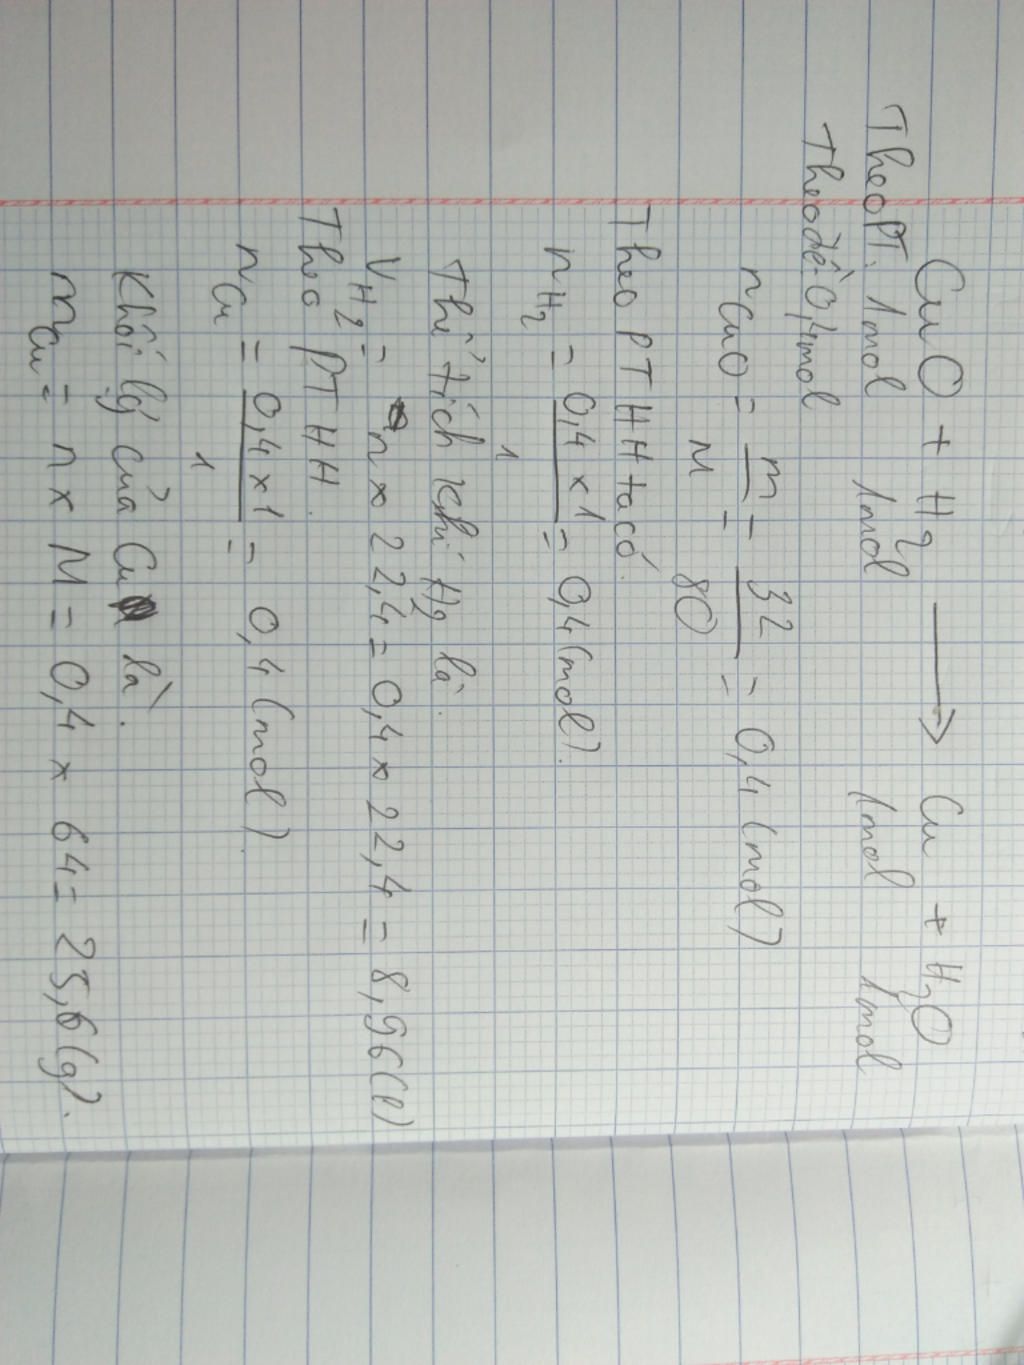 CuO + H2 → Cu + H2O
Theo PT: 1mol 1mol 1mol 1mol
Theo đề: 0,4mol
nCuO = m/M = 32/80 = 0,4 (mol)
Theo PTHH ta có.
nH2 = 0,4 x 1/1 = 0,4 (mol).
Thể tích khí H2 là.
VH2 = n x 22,4 = 0,4 x 22,4 = 8,96 (l)
Theo PTHH.
nCu = 0,4 x 1/1 = 0,4 (mol).
Khối lg của Cu là.
mCu = n x M = 0,4 x 64 = 25,6 (g).